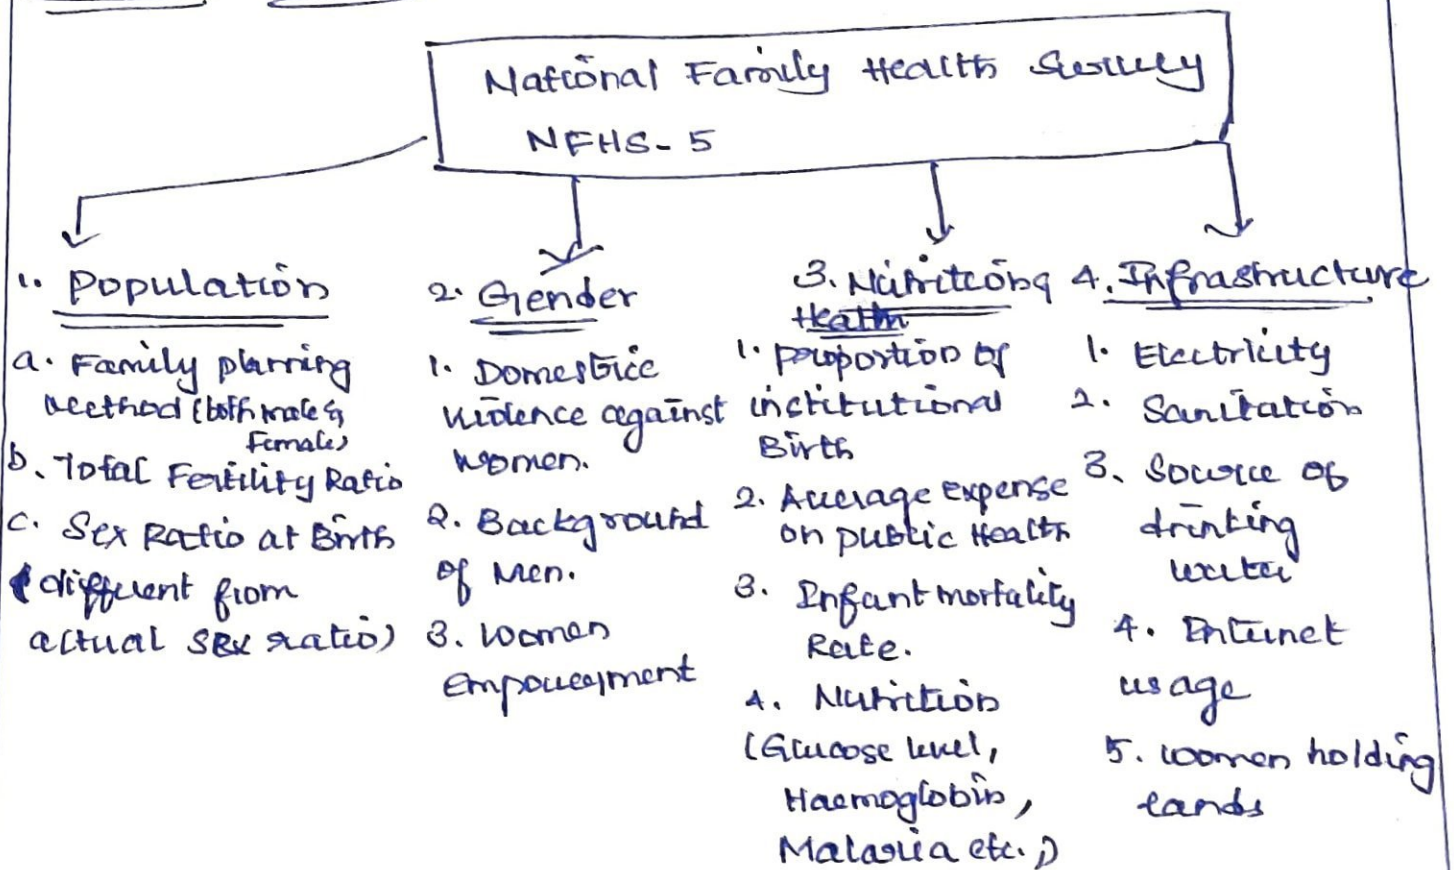 National Family Health Survey
NFHS-5
1. Population
a. Family planning
method (both male &
Female)
b. Total Fertility Ratio
c. Sex Ratio at Birth
(different from
actual sex ratio)
2. Gender
1. Domestice
violence against
women.
2. Background
of Men.
3. Women
Empowerment
3. Nutrition &
Health
1. proportion of
institutional
Birth
2. Average expense
on public Health
3. Infant mortality
Rate.
4. Nutrition
(Glucose level,
Haemoglobin,
Malaria etc.,)
4. Infrastructure
1. Electricity
2. Sanitation
3. Source of
drinking
water
4. Internet
usage
5. women holding
lands